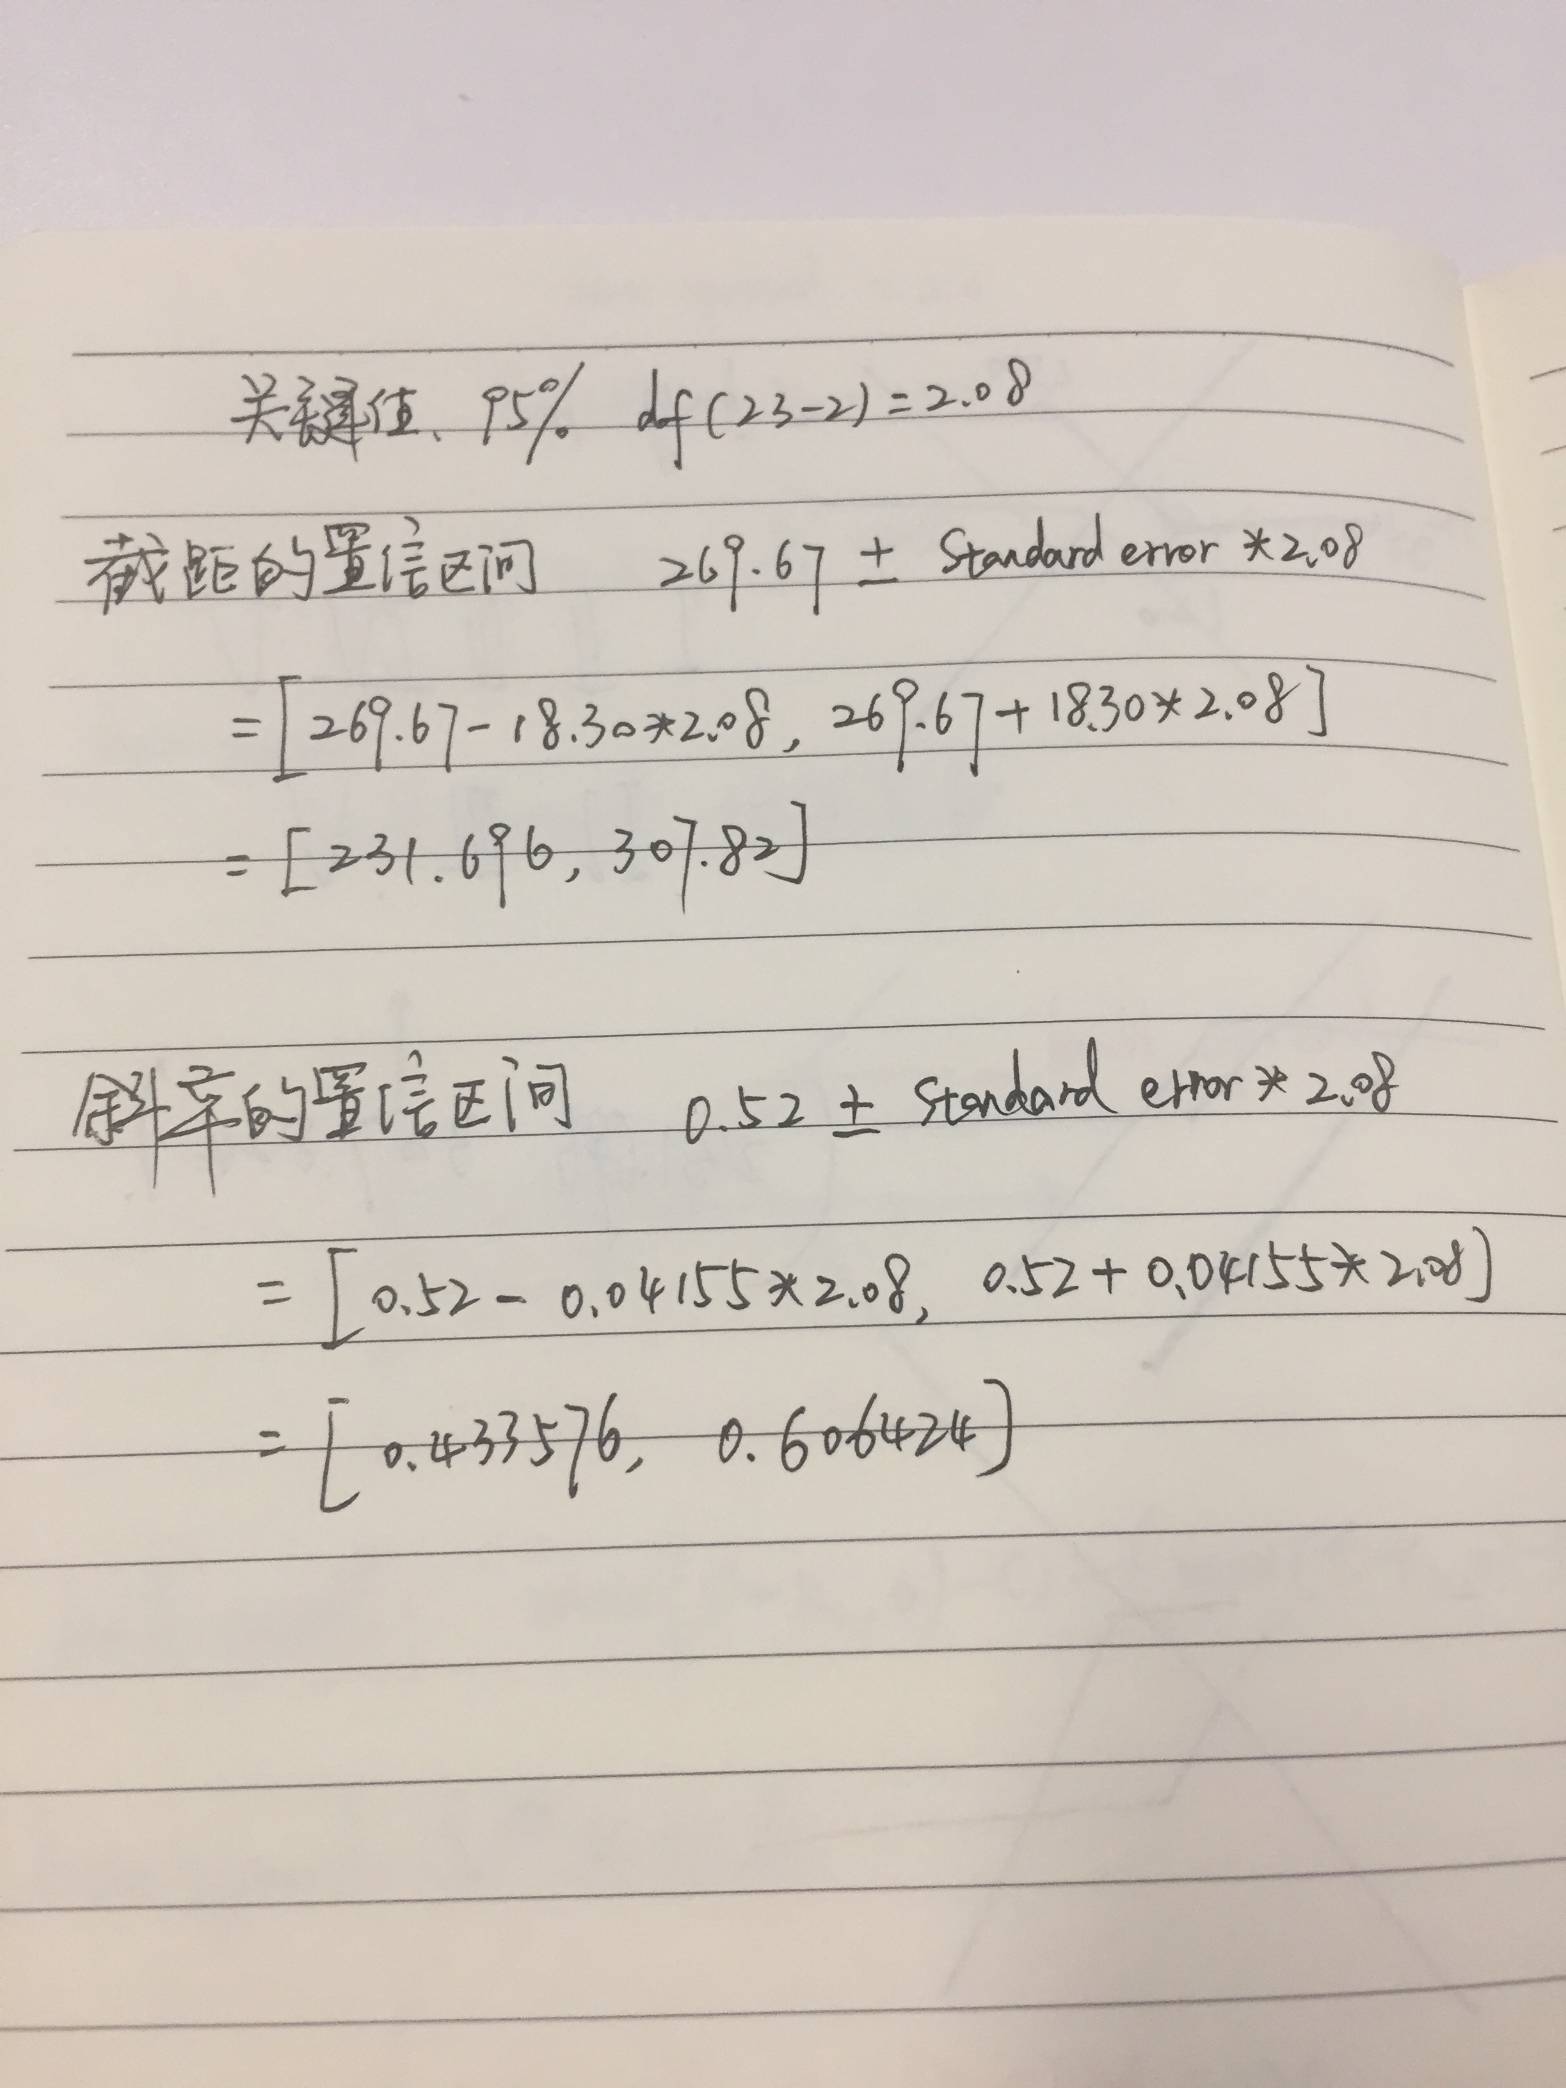 关键值、95% df(23-2)=2.08
截距的置信区间 269.67 ± Standard error *2.08
=[269.67-18.30*2.08, 269.67+18.30*2.08]
=[231.696, 307.82]
斜率的置信区间 0.52 ± Standard error * 2.08
=[0.52-0.04155*2.08, 0.52+0.04155*2.08]
=[0.433576, 0.606424]